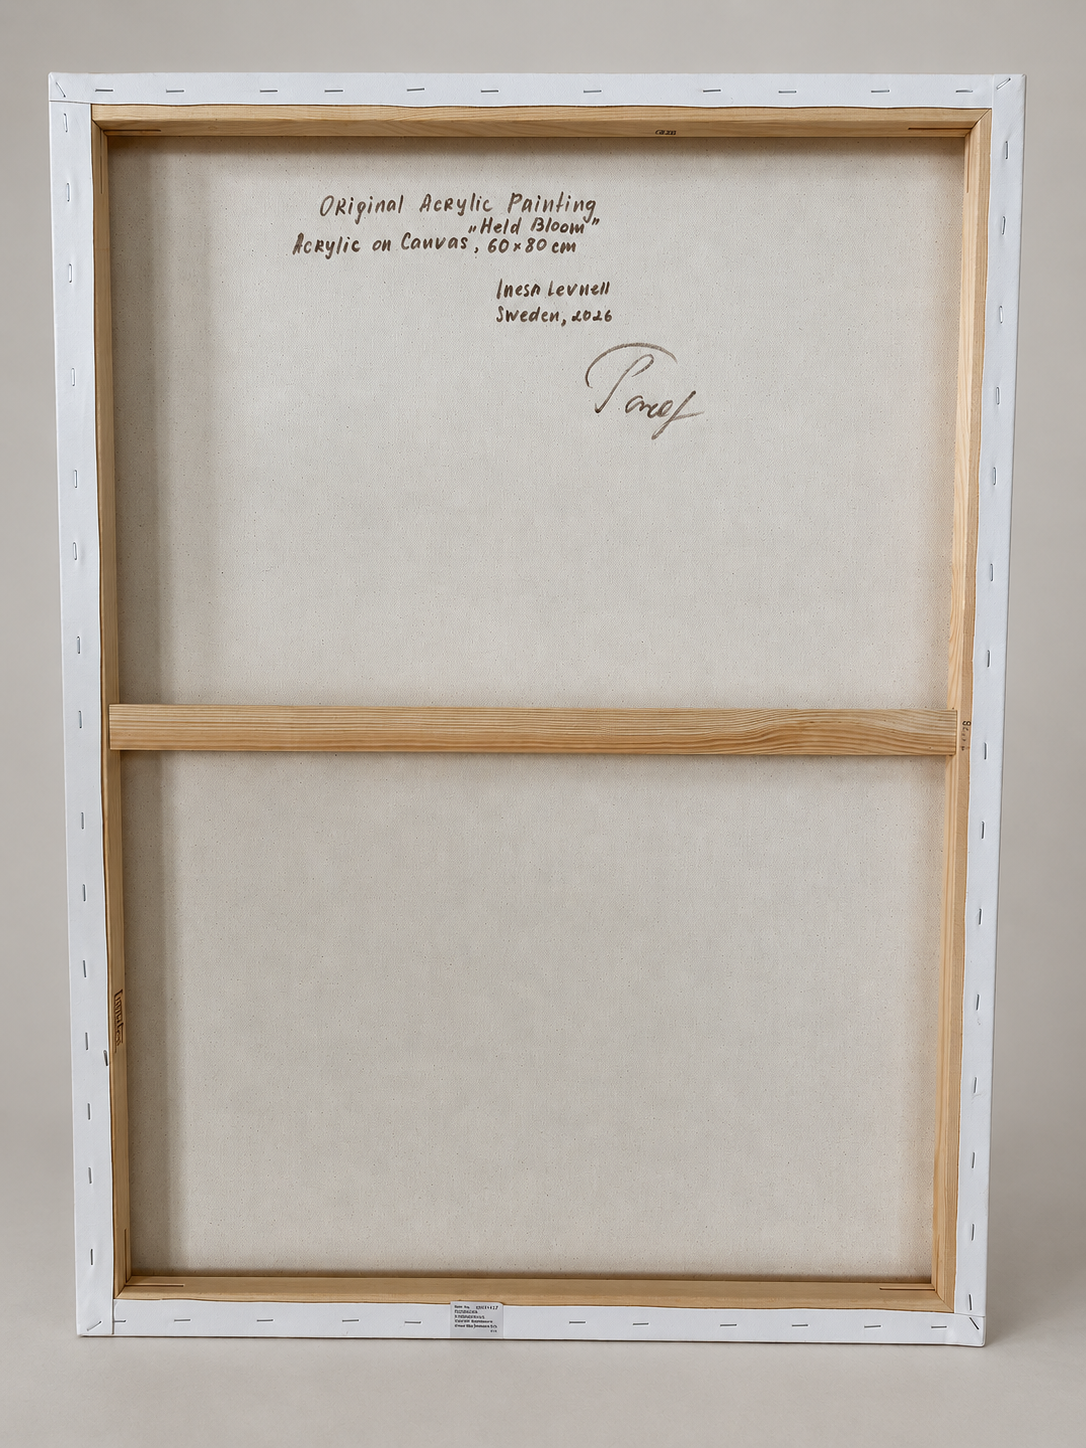 Original Acrylic Painting
„Held Bloom”
Acrylic on Canvas, 60×80 cm
Inesa Levnell
Sweden, 2026